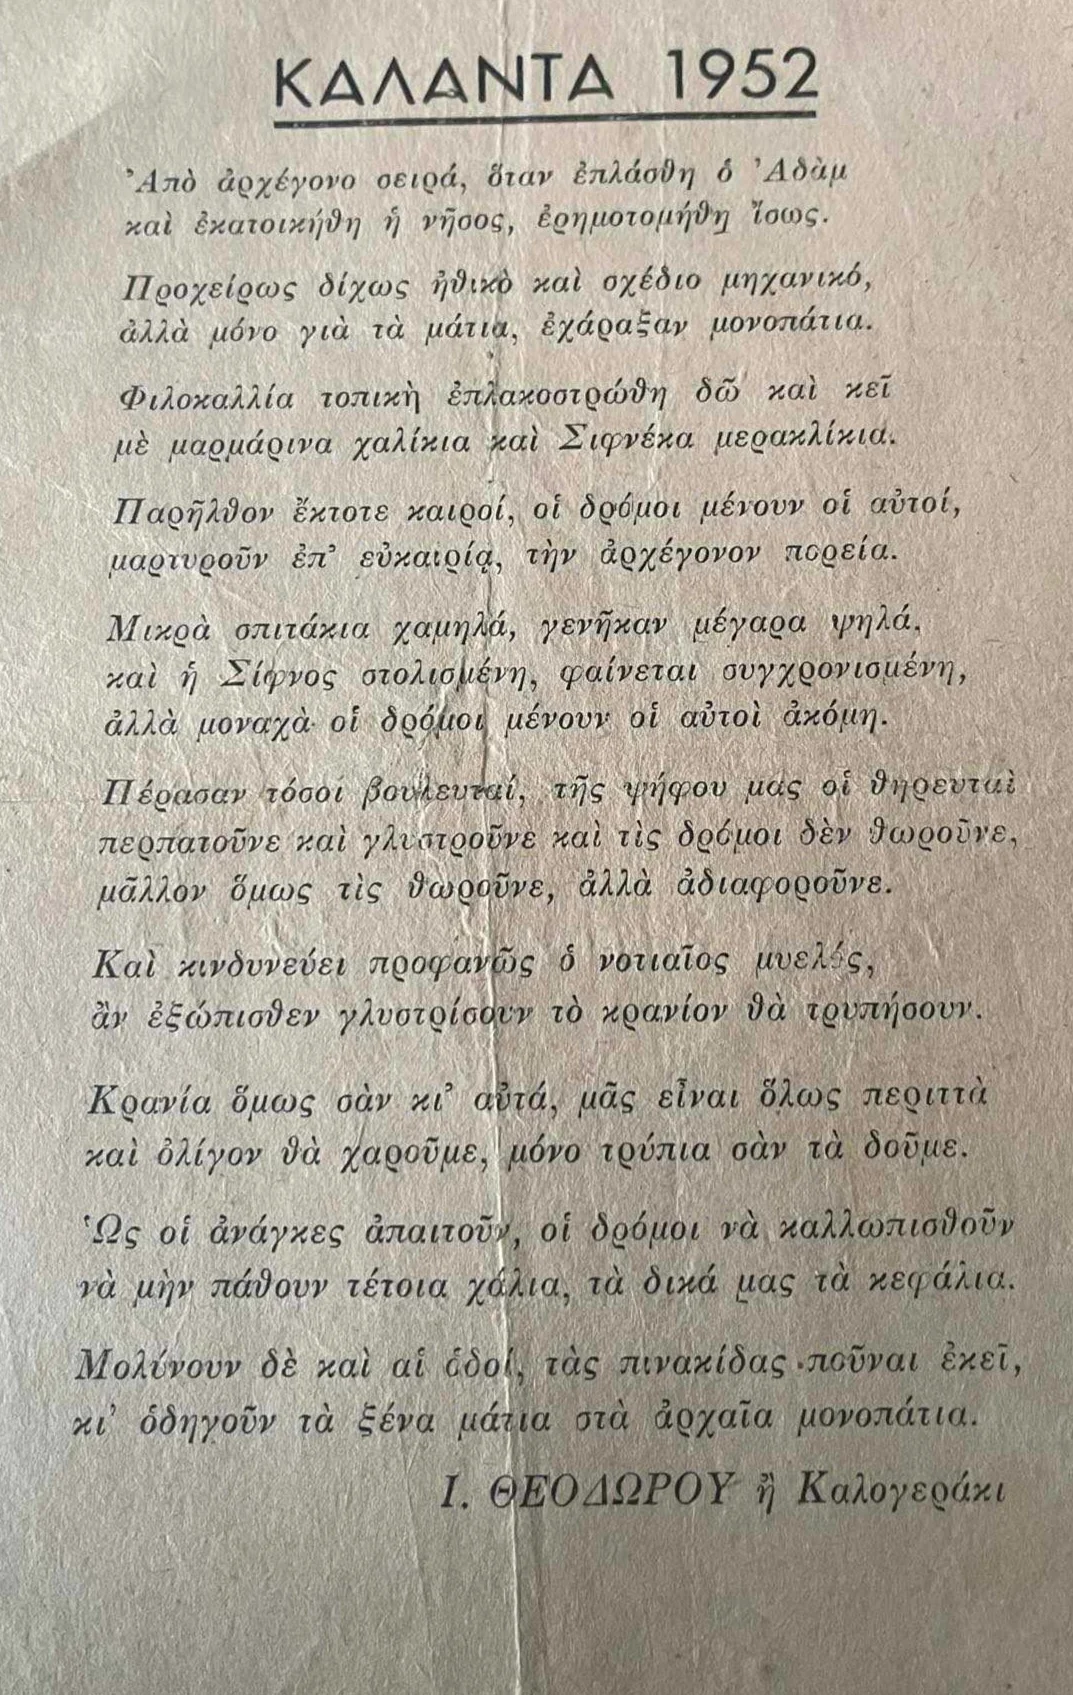 ΚΑΛΑΝΤΑ 1952
Ἀπὸ ἀρχέγονο σειρά, ὅταν ἐπλάσθη ὁ Ἀδὰμ
καὶ ἐκατοικήθη ἡ νῆσος, ἐρημοτομήθη ἴσως.
Προχείρως δίχως ἠθικὸ καὶ σχέδιο μηχανικό,
ἀλλὰ μόνο γιὰ τὰ μάτια, ἐχάραξαν μονοπάτια.
Φιλοκαλλία τοπικὴ ἐπλακοστρώθη δῶ καὶ κεῖ
μὲ μαρμάρινα χαλίκια καὶ Σιφνέκα μερακλίκια.
Παρῆλθον ἔκτοτε καιροί, οἱ δρόμοι μένουν οἱ αὐτοί,
μαρτυροῦν ἐπ' εὐκαιρίᾳ, τὴν ἀρχέγονον πορεία.
Μικρὰ σπιτάκια χαμηλά, γενῆκαν μέγαρα ψηλά,
καὶ ἡ Σίφνος στολισμένη, φαίνεται συγχρονισμένη,
ἀλλὰ μοναχὰ οἱ δρόμοι μένουν οἱ αὐτοὶ ἀκόμη.
Πέρασαν τόσοι βουλευταί, τῆς ψήφου μας οἱ θηρευταὶ
περπατοῦνε καὶ γλυστροῦνε καὶ τὶς δρόμοι δὲν θωροῦνε,
μᾶλλον ὅμως τὶς θωροῦνε, ἀλλὰ ἀδιαφοροῦνε.
Καὶ κινδυνεύει προφανῶς ὁ νοτιαῖος μυελός,
ἂν ἐξώπισθεν γλυστρίσουν τὸ κρανίον θὰ τρυπήσουν.
Κρανία ὅμως σὰν κι' αὐτά, μᾶς εἶναι ὅλως περιττὰ
καὶ ὀλίγον θὰ χαροῦμε, μόνο τρύπια σὰν τὰ δοῦμε.
Ὡς οἱ ἀνάγκες ἀπαιτοῦν, οἱ δρόμοι νὰ καλλωπισθοῦν
νὰ μὴν πάθουν τέτοια χάλια, τὰ δικά μας τὰ κεφάλια.
Μολύνουν δὲ καὶ αἱ ὁδοί, τὰς πινακίδας ποῦναι ἐκεῖ,
κι' ὁδηγοῦν τὰ ξένα μάτια στὰ ἀρχαῖα μονοπάτια.
Ι. ΘΕΟΔΩΡΟΥ ἢ Καλογεράκι